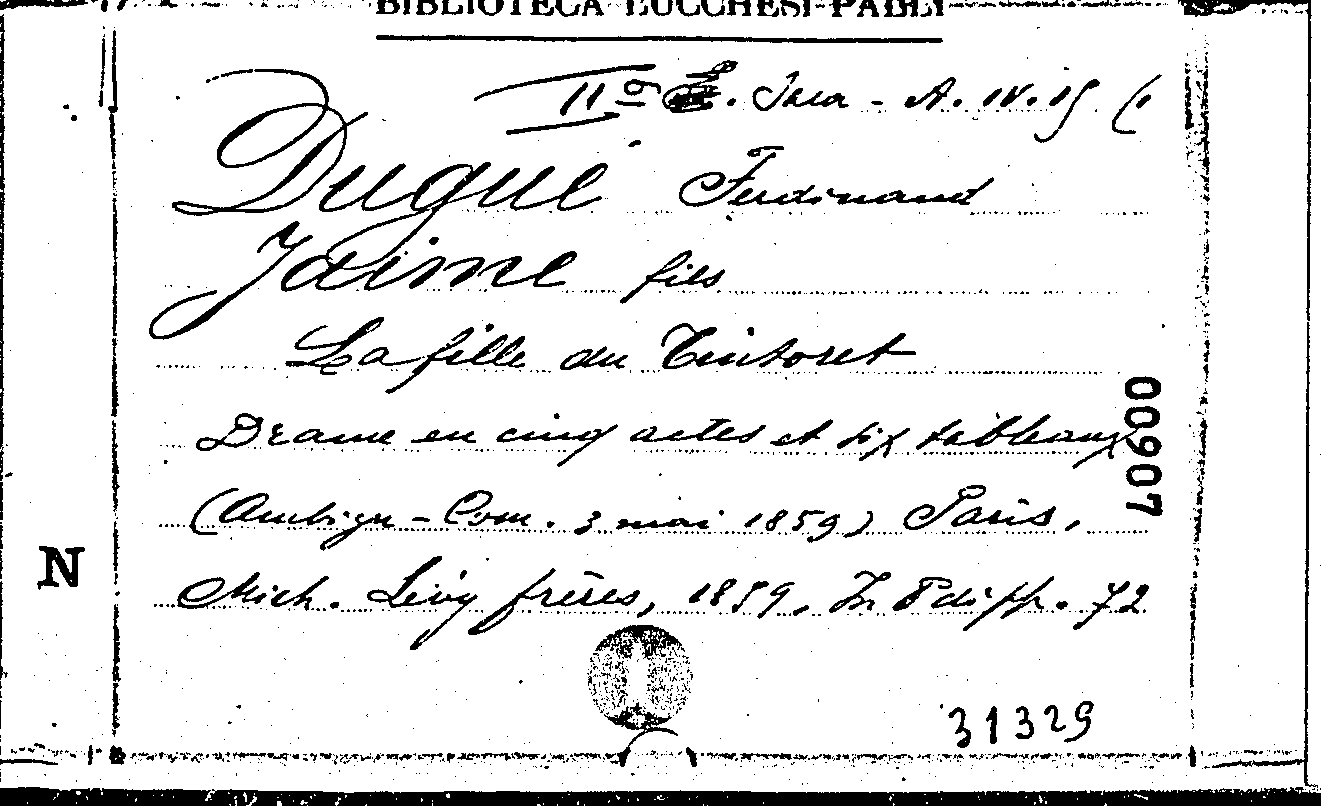 BIBLIOTECA LUCCHESI-PALLI
IIº . Sala - A. IV. 15 (1
Dugué Ferdinand
Jaime fils
La fille du Tintoret
Drame en cinq actes et six tableaux
(Ambigu-Com. 3 mai 1859) Paris,
Mich. Lévy frères, 1859, In 8 di pp. 72
00907
N
31329